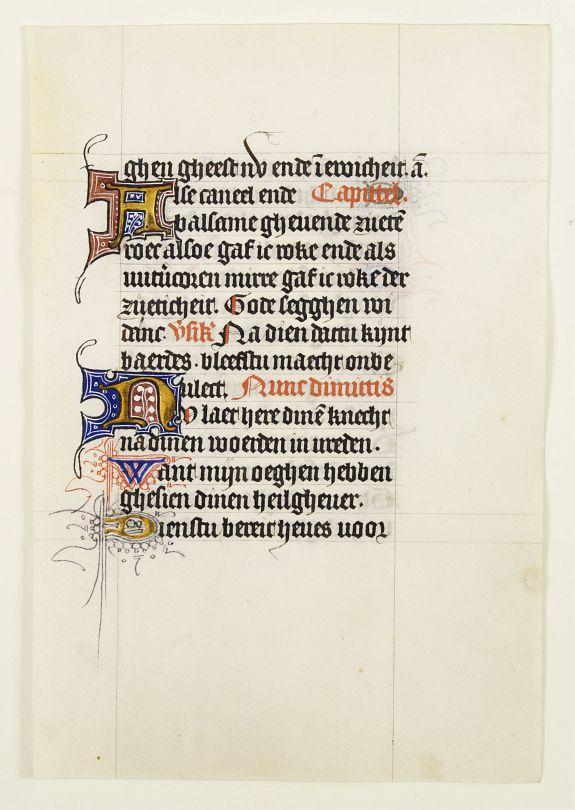 ghen gheest nv ende ī ewicheit. ā.
Alse caneel ende Capittel.
balsame gheuende zuetē
roec alsoe gaf ic roke ende als
mirre gaf ic roke der
zueticheit. Gode segghen wi
danc. vsik̄ Na dien dattu kijnt
baerdes. bleefstu maecht onbe
ulect. Nunc dimittis
Nv laet here dinē knecht
na dinen woerden in vreden.
Want mijn oeghen hebben
ghesien dinen heilgheuer.
Dienstu bereit heues voor